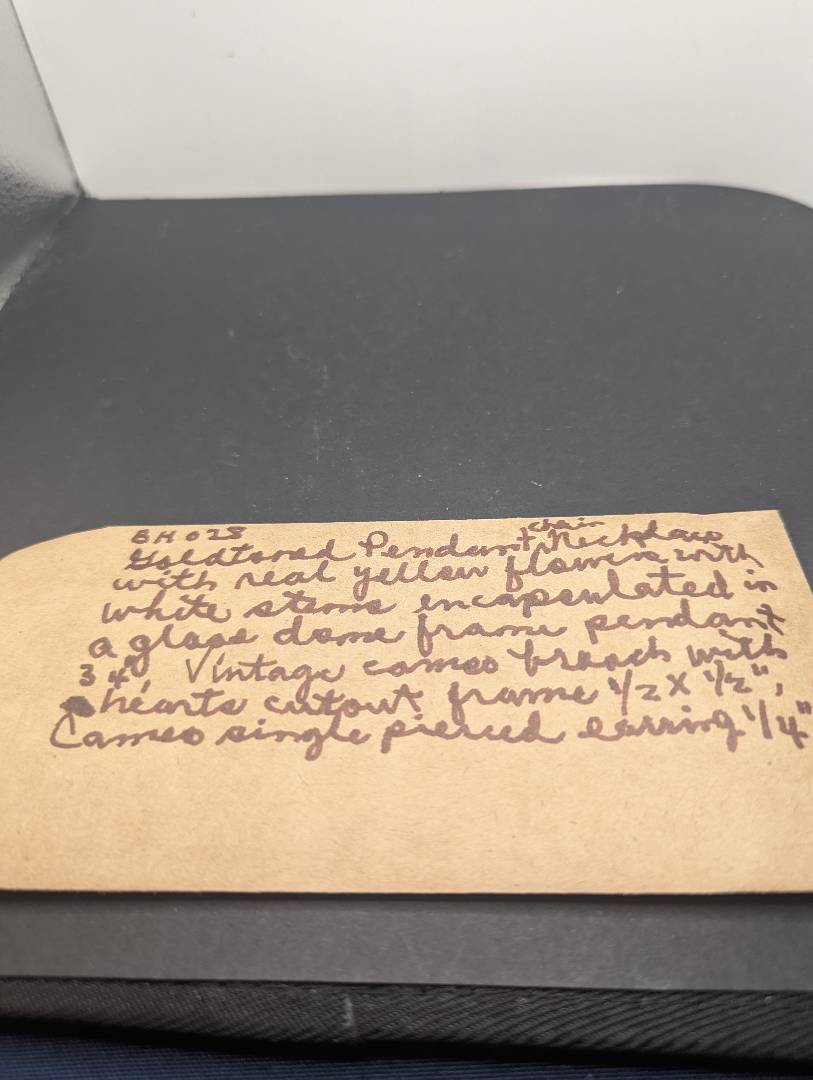 BH 028
Goldtoned Pendant chain Necklace
with real yellow flowers with
white stems encapsulated in
a glass dome frame pendant
3/4" Vintage cameo broach with
hearts cutout frame 1/2 X 1/2",
Cameo single pierced earring 1/4"